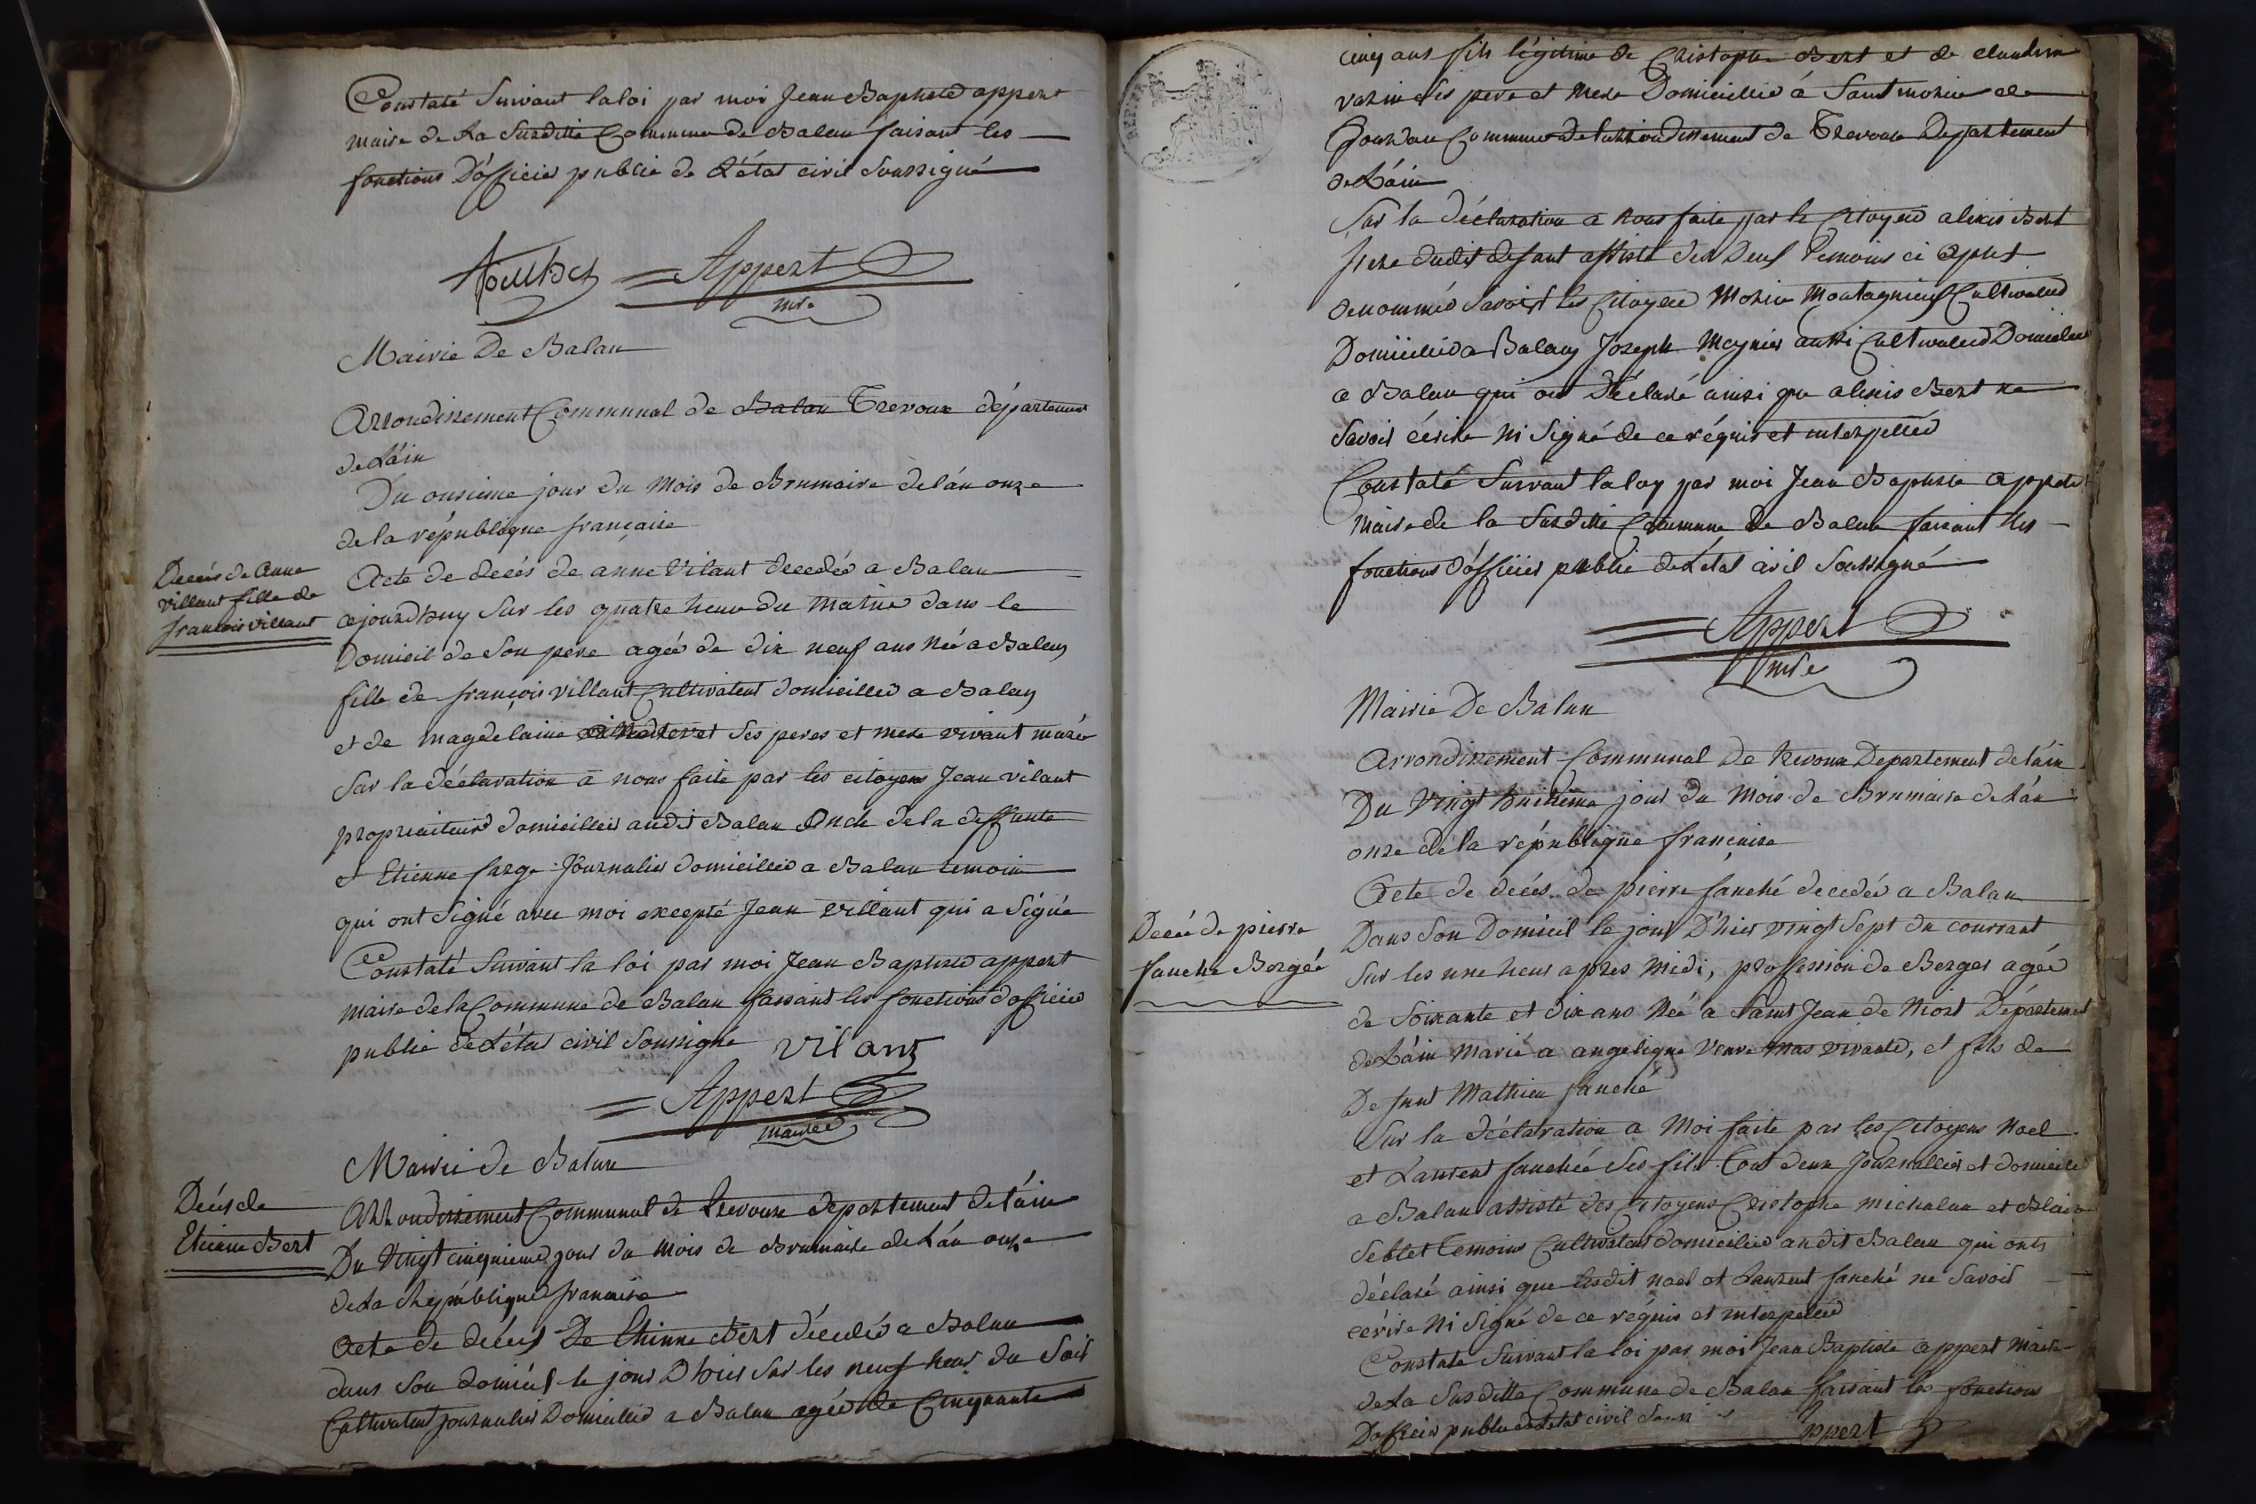 Constaté Suivant la loi par moi Jean Baptiste appert
maire de La Susditte Commune de Balan faisant les
fonctions D'officier public de L'état civil Soussigné
Appert
mre
Mairie De Balan
Arrondissement Communal de Balan Trevoux département
de L'áin
Du onsieme jour du Mois de Brumaire de l'án onze
de la république française
Decés de Anne
villant fille de
francois villant
Acte de decés de anne Vilant decedée a Balan
aujourdhuy Sur les quatre heure du Matin dans le
Domicil de Son pere agée de dix neuf ans Née a Balan
fille de françois villant Cultivateur domicillié a Balan
et de magdelaine ses peres et mere vivant mariés
Sur la déclaration à nous faite par les citoyens Jean vilant
propriaiteur domicilliés audit Balan Oncle de la deffunte
& Etienne farge Journalier domicillié a Balan temoin
qui ont Signé avec moi excepté Jean villant qui a Signé
Constaté Suivant la loi par moi Jean Baptiste appert
maire de la Commune de Balan faisant les fonctions d'officier
public de L'état civil Soussigné vilant
Appert
maire
Mairie de Balan
Decés de
Etienne Bert
Arrondissement Communal de Trevoux département de l'áin
Du Vingt cinquieme jour du mois de Brumaire de L'án onze
de La République francaise
Acte de décès De Etienne Bert décédé a Balan
dans Son domicil le jour D'hier Sur les neuf heur du Soir
Cultivateur journalier Domicilié a Balan agée de Cinquante
cinq ans fils légitime de Christophe Bert et de claudine
varin Ses pere et Mere Domicilliés à Saint Morice de
Gourdan Commune de l'arrondissement de Trevoux Departement
de L'áin
Sur la déclaration a Nous faite par le Citoyen alexis Bert
frere dudit defunt assisté des deux Temoins ci apres
denommés Savoir les Citoyen Morice Montagnieux Cultivateur
Domicilié a Balan Joseph Meynier aussi Cultivateur Domicilié
a Balan qui ont Déclaré ainsi que alexis Bert ne
Savoir écrire Ni Signé de ce réquis et interpellés
Constaté Suivant la loy par moi Jean Baptiste Appert
Maire de la Susditte Commune De Balan faisant les
fonctions d'officier public de L'état civil Soussigné
Appert
mre
Mairie De Balan
Arrondissement Communal De Trevoux Departement de l'áin
Du Vingt huitieme jour du Mois de Brumaire de L'án
onze de la république francaise
Decé de pierre
fanché Bergée
Acte de decés de pierre fanché decedé a Balan
Dans Son Domicil le jour D'hier vingt Sept du courrant
Sur les une heur apres Midi, proffession de Berger agée
de Soixante et dix ans Née a Saint Jean de Niost Département
de L'áin Marié a angeligue Veuve Mas vivante, et fils de
Defunt Mathieu fanché
Sur la déclatration a Moi faite par les Citoyens Noel
et Laurent fanchée Ses fils Tout deux Journallier et domicilié
a Balan assisté des Citoyens Cristophe michalan et Blaise
Seblet Temoins Cultivateur domicilié audit Balan qui onts
déclaré ainsi que lesdit Noel et Laurent fanché ne Savoir
ecrire Ni Signé de ce réquis et interpellé
Constaté Suivant la loi par moi Jean Baptiste appert Maire
de La Susditte Commune de Balan faisant les fonctions
D'officier public de L'etat civil Appert